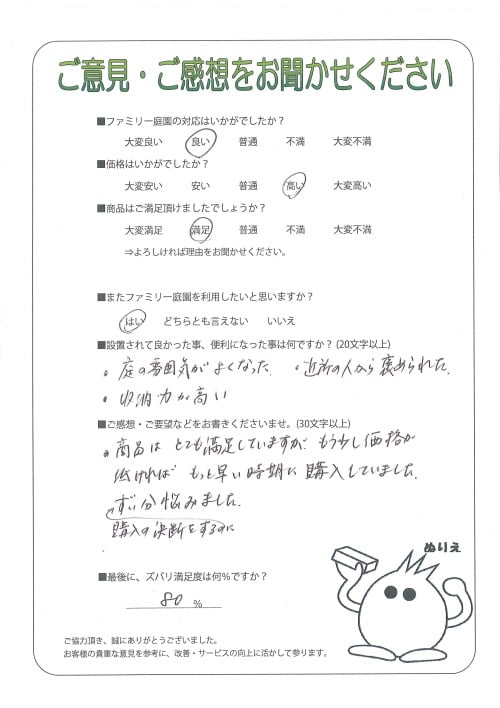 ご意見・ご感想をお聞かせください
■ファミリー庭園の対応はいかがでしたか？
大変良い 良い 普通 不満 大変不満
■価格はいかがでしたか？
大変安い 安い 普通 高い 大変高い
■商品はご満足頂けましたでしょうか？
大変満足 満足 普通 不満 大変不満
⇒よろしければ理由をお聞かせください。
■またファミリー庭園を利用したいと思いますか？
はい どちらとも言えない いいえ
■設置されて良かった事、便利になった事は何ですか？ (20文字以上)
・庭の雰囲気がよくなった ・近所の人から褒められた
・収納力が高い
■ご感想・ご要望などをお書きくださいませ。(30文字以上)
・商品は とても満足していますが、もう少し価格が
ければ もっと早い時期に購入していました。
ずい分悩みました。
購入の決断をするのに
ぬりえ
■最後に、ズバリ満足度は何％ですか？
80 ％
ご協力頂き、誠にありがとうございました。
お客様の貴重な意見を参考に、改善・サービスの向上に活かして参ります。